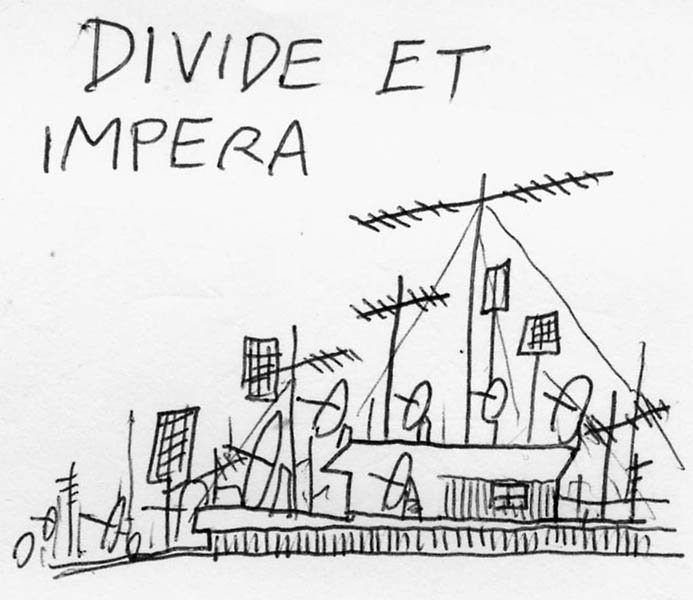 DIVIDE ET
IMPERA